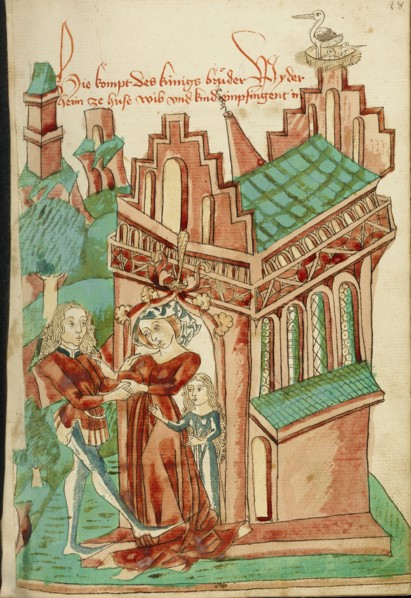 Hie kompt des künigs brůder Wyder
heim ze huse wib vnd kind enpfingent in